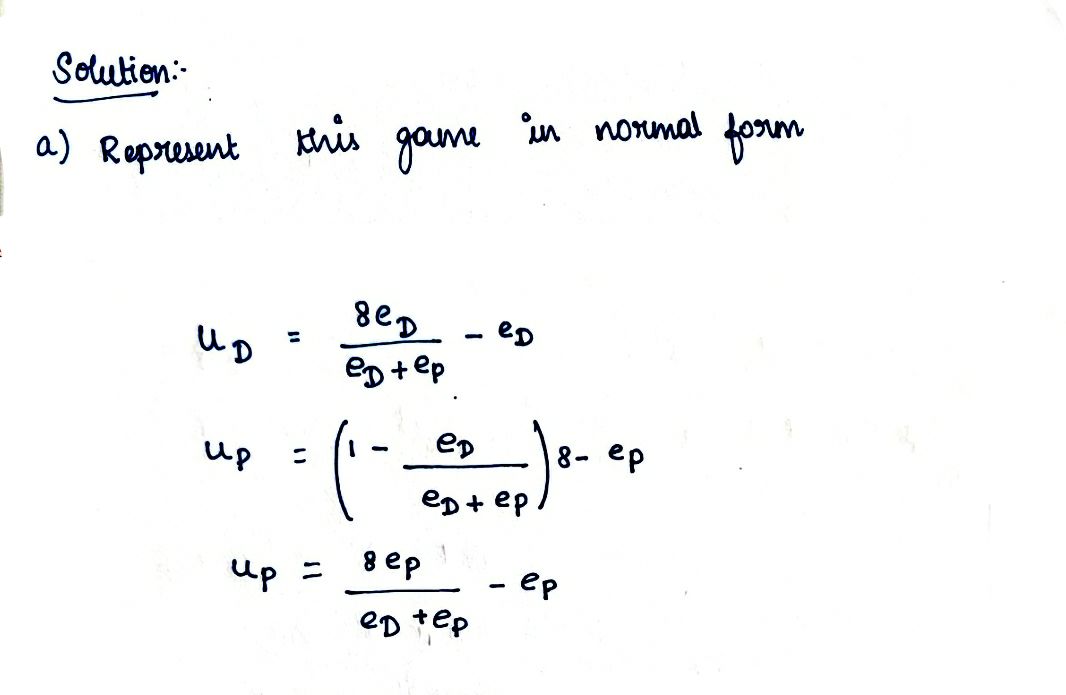 Solution:-
a) Represent this game in normal form
u_D = \frac{8e_D}{e_D + e_P} - e_D
u_P = \left(1 - \frac{e_D}{e_D + e_P}\right) 8 - e_P
u_P = \frac{8e_P}{e_D + e_P} - e_P